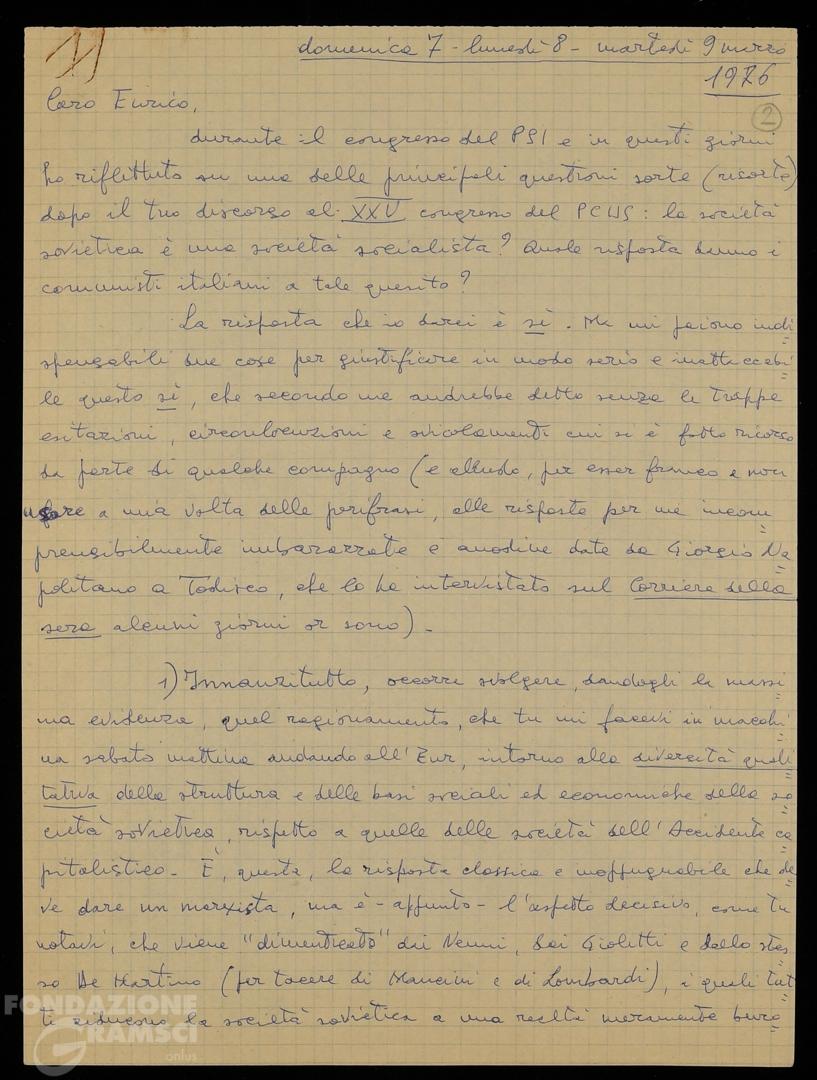 11
domenica 7 - lunedì 8 - martedì 9 marzo
1976
2
Caro Enrico,
durante il congresso del PSI e in questi giorni
ho riflettuto su una delle principali questioni sorte (risorte)
dopo il tuo discorso al XXV congresso del PCUS: la società
sovietica è una società socialista? Quale risposta danno i
comunisti italiani a tale quesito?
La risposta che io darei è sì. Ma mi paiono indi=
spensabili due cose per giustificare in modo serio e inattaccabi=
le questo sì, che secondo me andrebbe detto senza le troppe
esitazioni, circonlocuzioni e svicolamenti cui si è fatto ricorso
da parte di qualche compagno (e alludo, per esser franco e non
"fare a mia volta delle perifrasi, alle risposte per me incom=
prensibilmente imbarazzate e anodine date da Giorgio Na=
politano a Todisco, che lo ha intervistato sul Corriere della
sera alcuni giorni or sono).
1) Innanzitutto, occorre svolgere, dandogli la massi=
ma evidenza, quel ragionamento, che tu mi facevi in macchi=
na sabato mattina andando all'Eur, intorno alla diversità quali=
tativa della struttura e delle basi sociali ed economiche della so=
cietà sovietica, rispetto a quelle delle società dell'Occidente ca=
pitalistico. È, questa, la risposta classica e inoppugnabile che de=
ve dare un marxista, ma è - appunto - l'aspetto decisivo, come tu
notavi, che viene "dimenticato" dai Nenni, dai Giolitti e dallo stes=
so De Martino (per tacere di Mancini e di Lombardi), i quali tut=
ti riducono la società sovietica a una realtà meramente buro=
FONDAZIONE
GRAMSCI
onlus